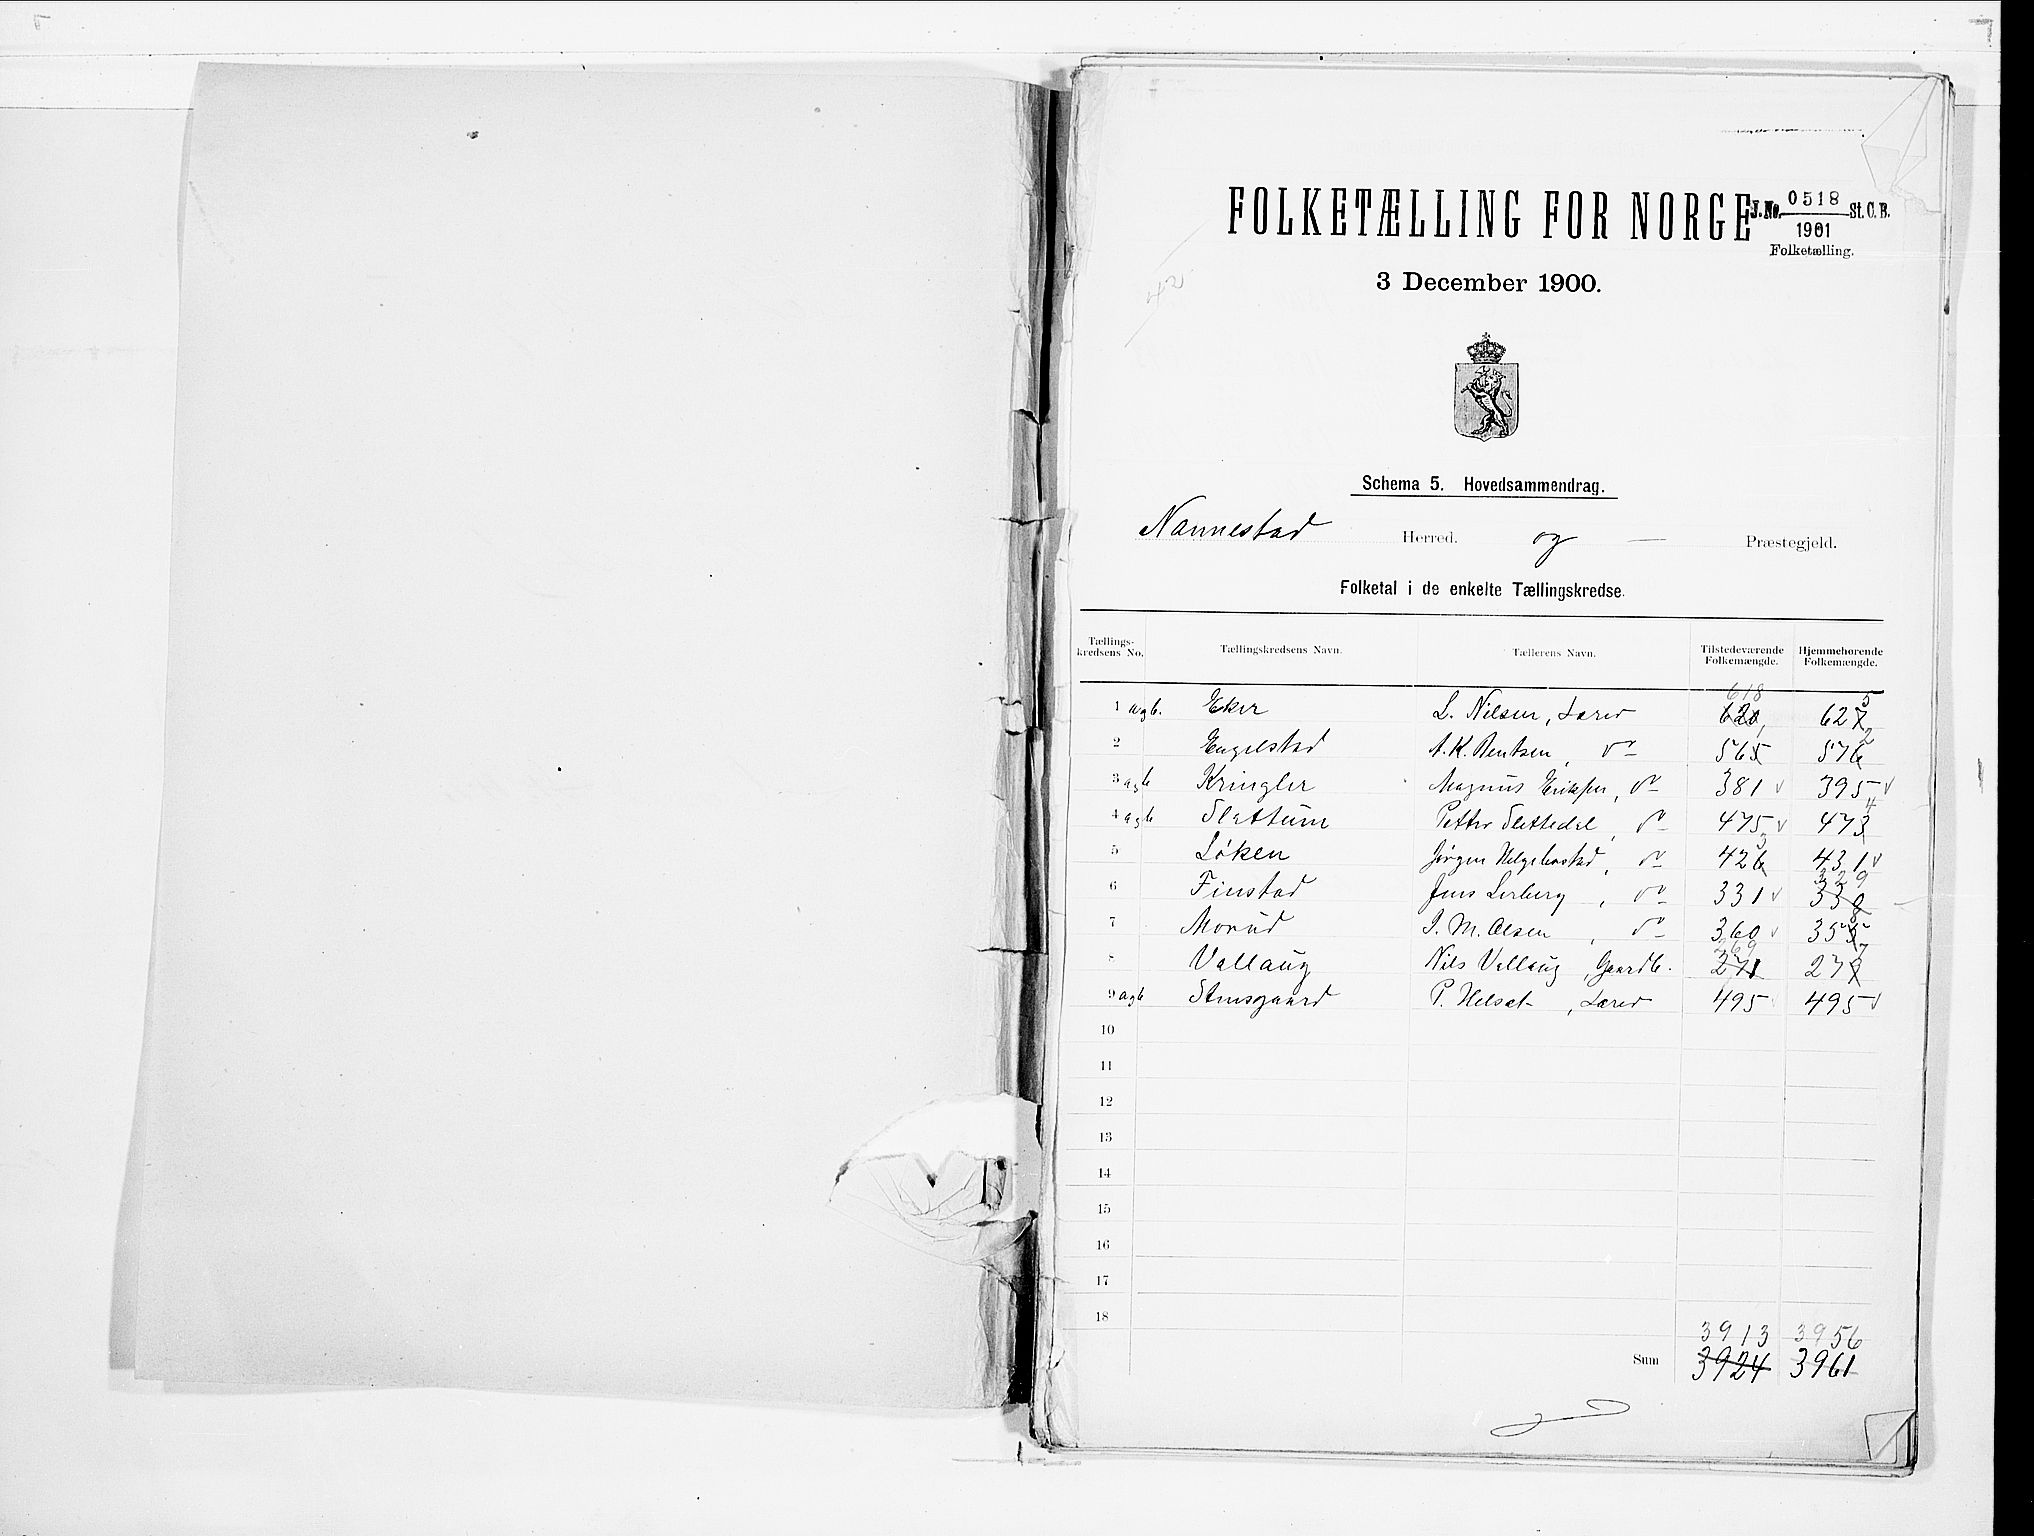 FOLKETÆLLING FOR NORGE
J. No. 0518 St. C. B.
1901
Folketælling.
3 December 1900.
42
Schema 5. Hovedsammendrag.
Nannestad Herred. og — Præstegjeld.
Folketal i de enkelte Tællingskredse.
Tællings-kredsens No. Tællingskredsens Navn. Tællerens Navn. Tilstedeværende Folkemængde. Hjemmehørende Folkemængde.
618 5
1 a g b. Eker L. Nilsen, Lærer 620, 627
2
2 Engelstad A. K. Bentsen, do 565 576
3 a g b Kringler Magnus Eriksen, do 381 v 395 v
4
4 a g b Slattum Petter Slettedal, do 475 v 473
3
5 Løken Jørgen Helgebostad, do 426 431 v
329
6 Finstad Jens Lerberg, do 331 v 330
8
7 Morud J. M. Olsen, do 360 v 355
269 7
8 Vallaug Nils Vallaug, Gaardb. 271 279
9 a g b Stensgaard P. Helset, Lærer 495 495 v
10
11
12
13
14
15
16
17
18
3913 3956
Sum 3924 3961